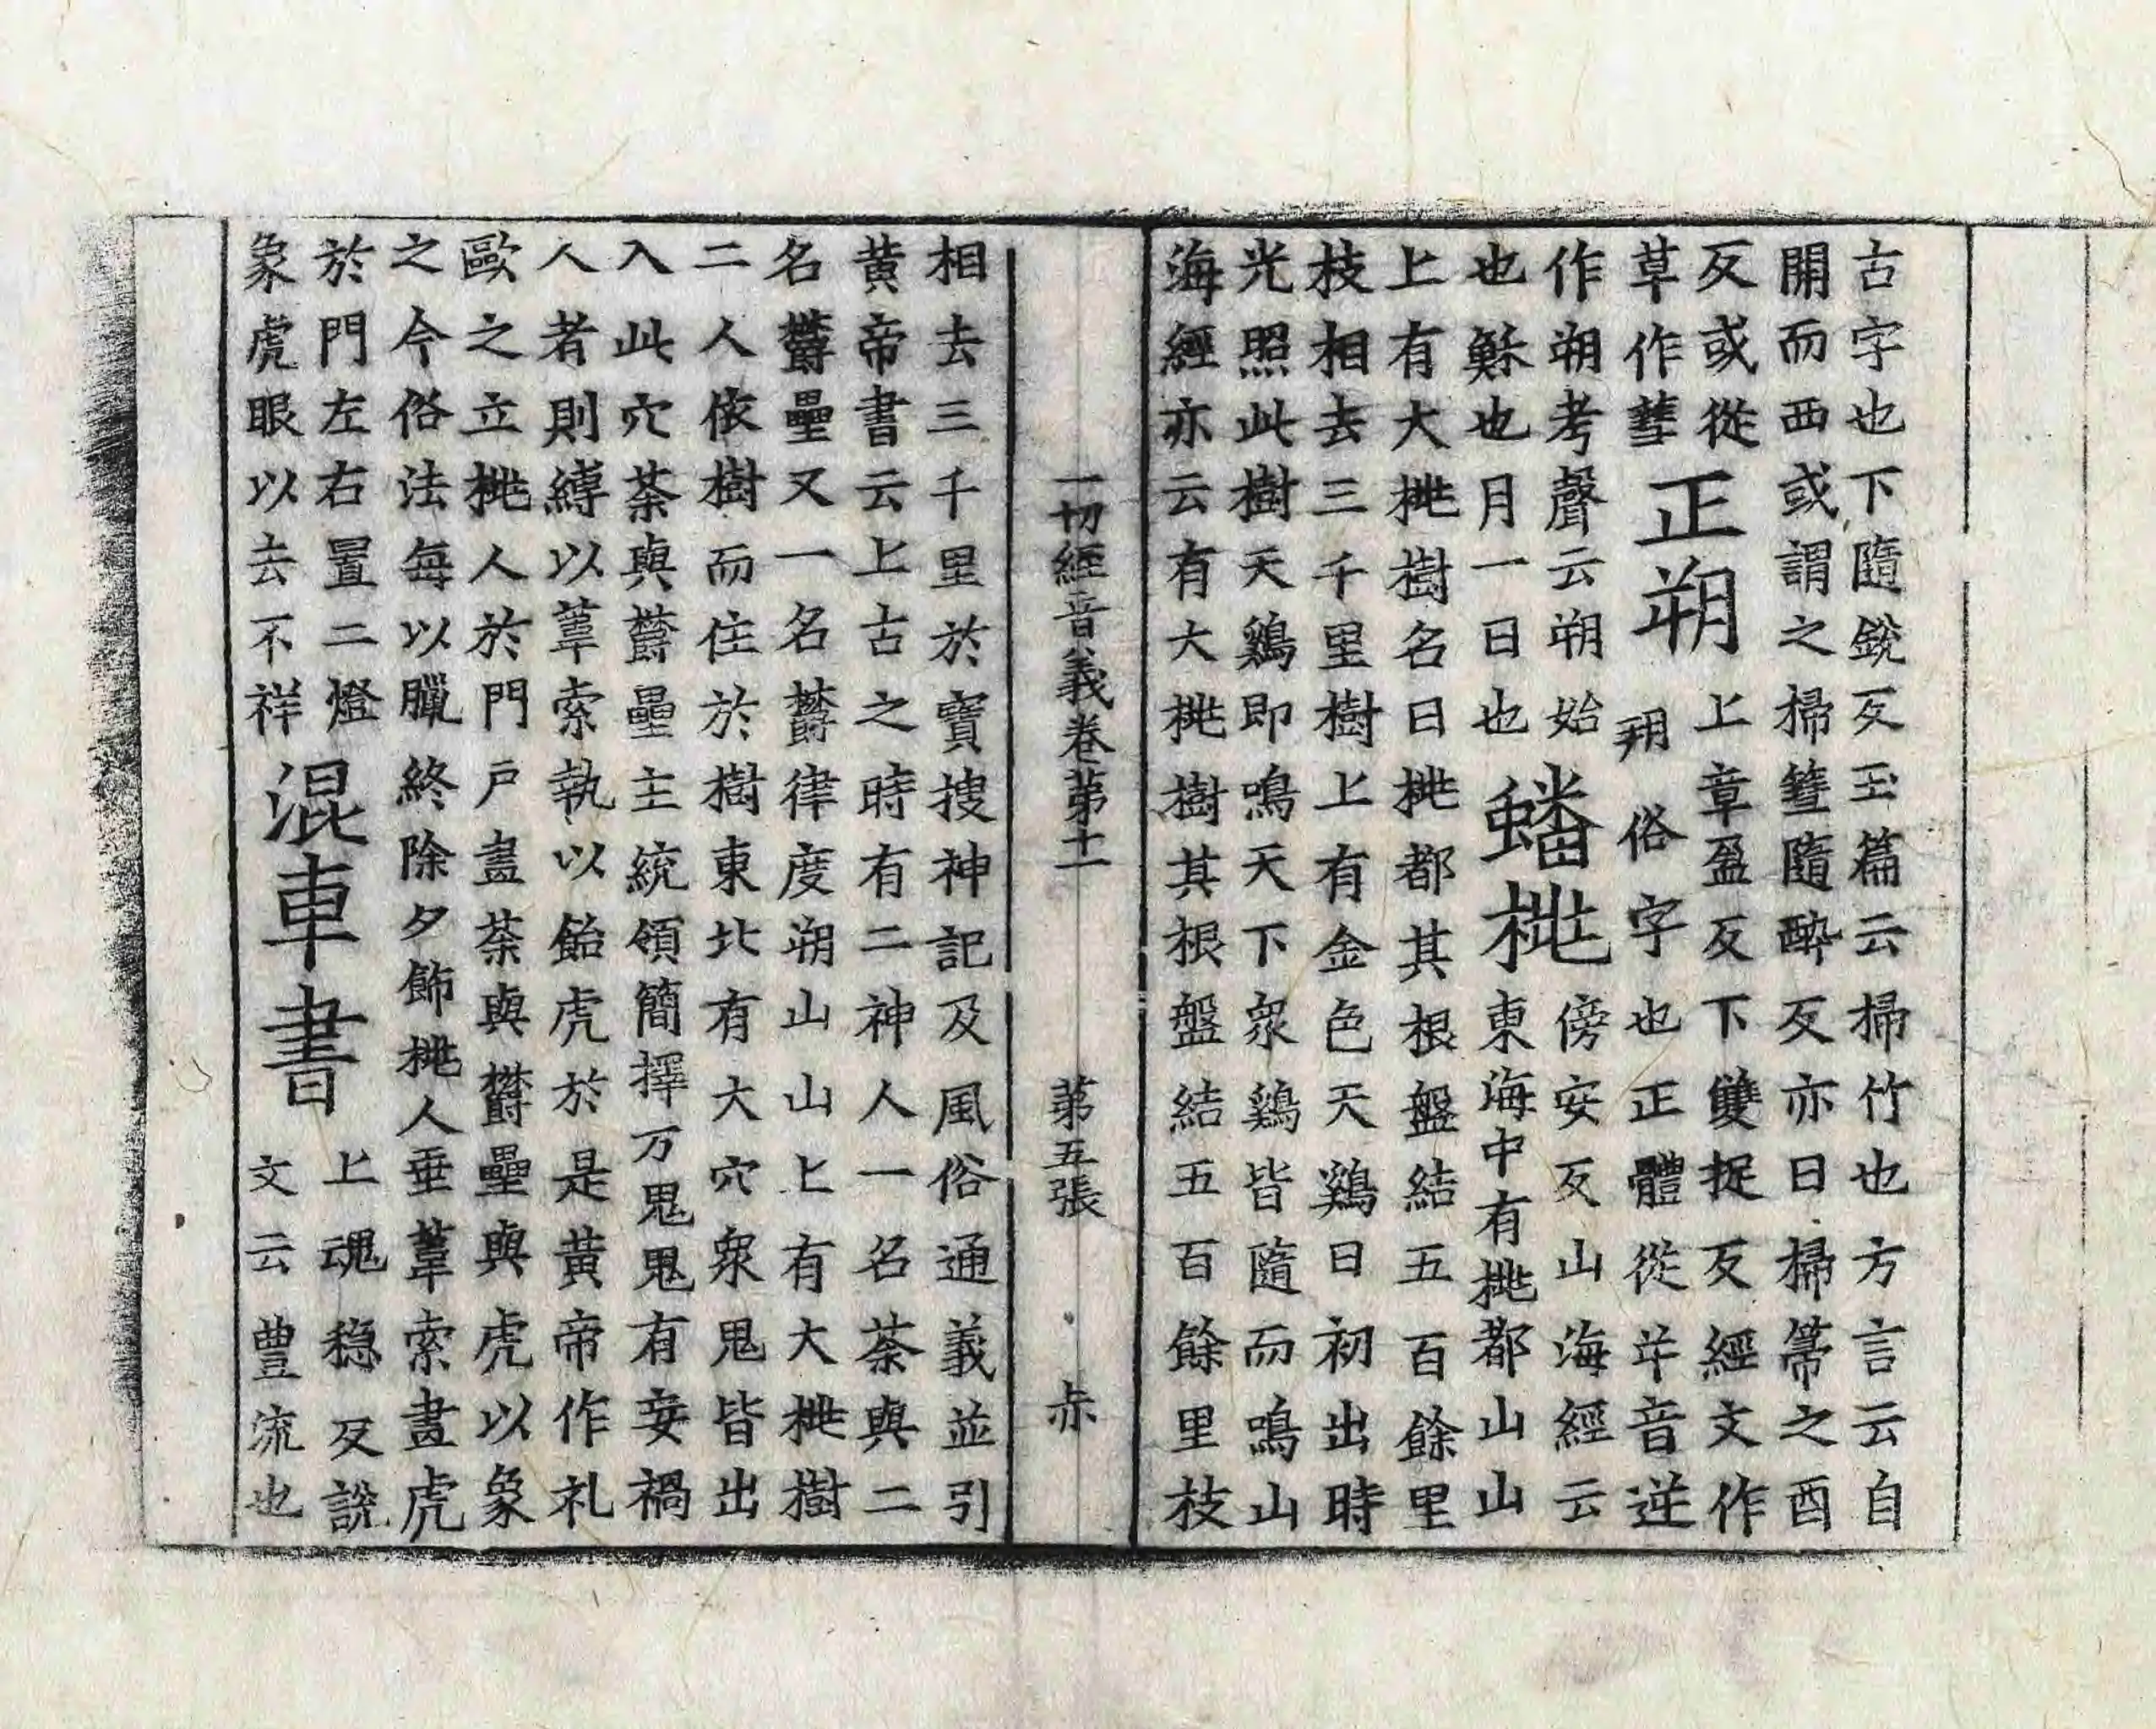 古字也下隨銳反玉篇云掃竹也方言云自
開而西或謂之掃篲隨醉反亦曰掃箒之酉
反或從
草作䔹正朔上章盈反下雙捉反經文作
䎳俗字也正體從屰音逆
作朔考聲云朔始
也穌也月一日也蟠桃傍安反山海經云
東海中有桃都山山
上有大桃樹名曰桃都其根盤結五百餘里
枝相去三千里樹上有金色天鷄日初出時
光照此樹天鷄即鳴天下衆鷄皆隨而鳴山
海經亦云有大桃樹其根盤結五百餘里枝
一切經音義卷第十一　第五張　赤
相去三千里於寶搜神記及風俗通義並引
黃帝書云上古之時有二神人一名荼與二
名欝壘又一名欝律度朔山山上有大桃樹
二人依樹而住於樹東北有大穴衆鬼皆出
入此穴荼與欝壘主統領簡擇万鬼鬼有妄禍
人者則縛以葦索執以飴虎於是黃帝作礼
歐之立桃人於門戶畫荼與欝壘與虎以象
之今俗法每以臘終除夕飾桃人垂葦索畫虎
於門左右置二燈
象虎眼以去不祥混車書上魂穩反說
文云豊流也